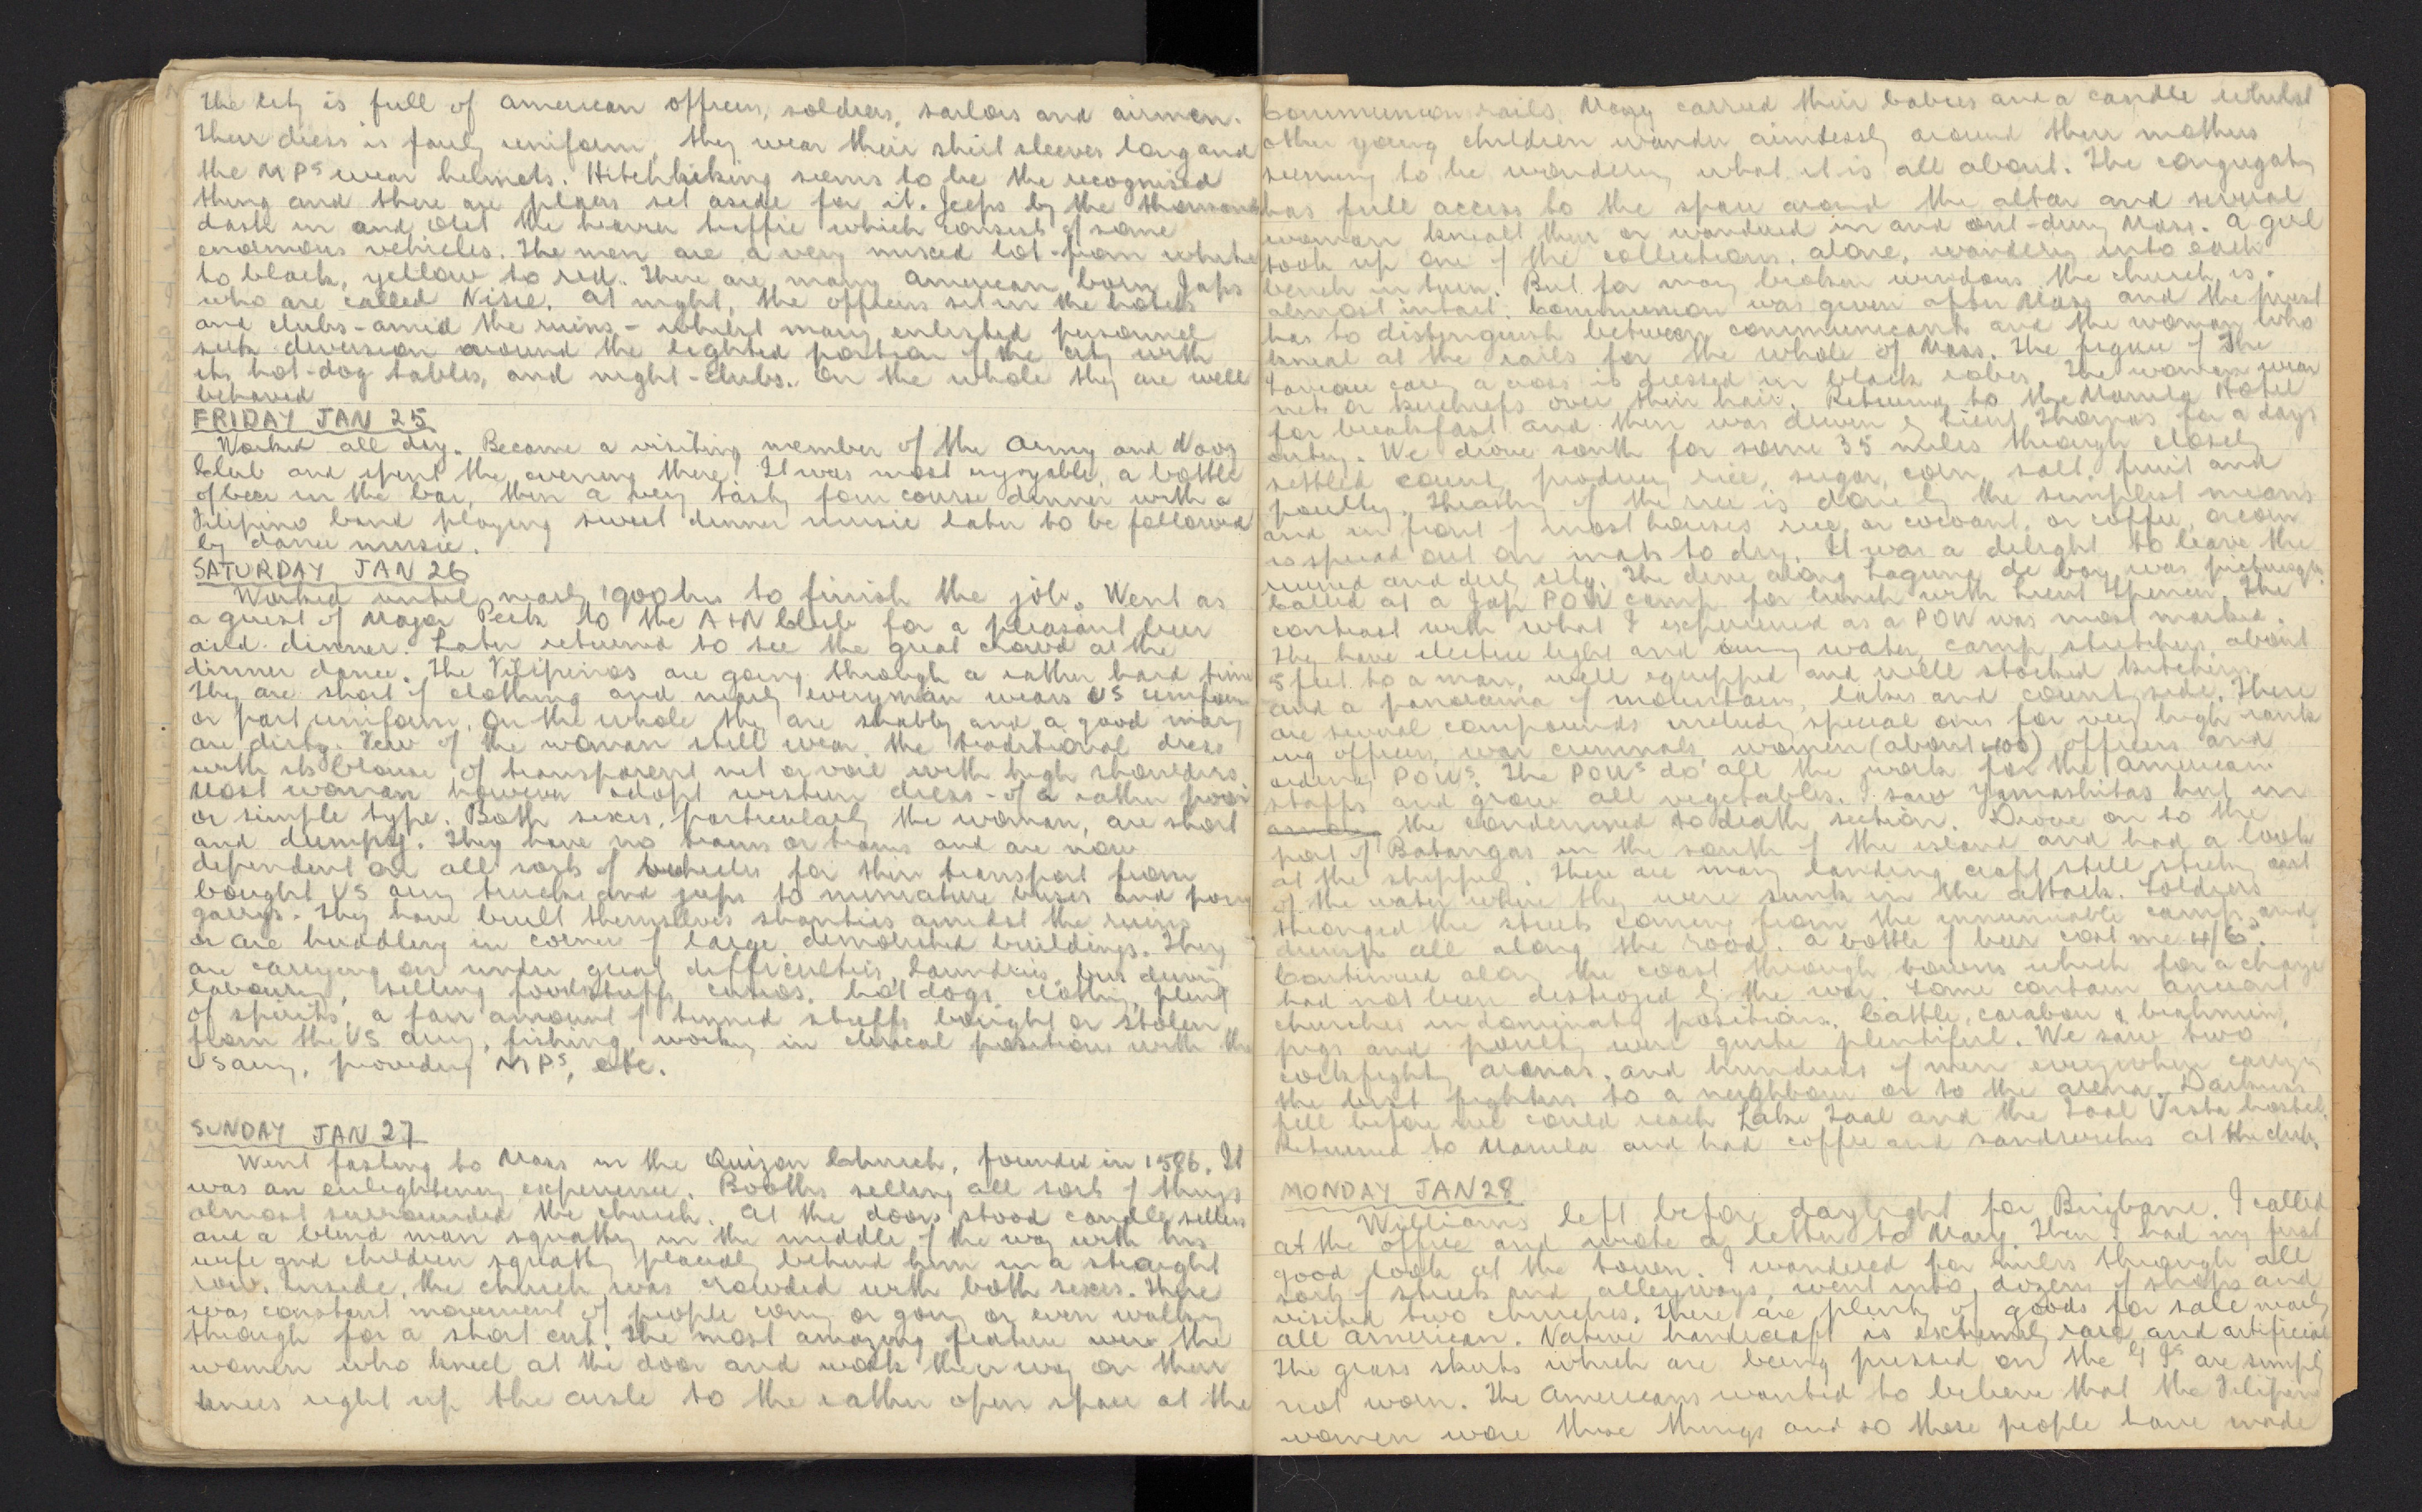 The city is full of American officers, soldiers, sailors and airmen.
Their dress is fairly uniform, they wear their shirt sleeves long and
the MPs wear helmets. Hitchhiking seems to be the recognised
thing and there are places set aside for it. Jeeps by the thousand
dash in and out the heavier traffic which consists of some
enormous vehicles. The men are a very mixed lot - from white
to black, yellow to red. There are many American born Japs
who are called Nisie. At night, the officers sit in the hotels
and clubs - amid the ruins - whilst many enlisted personnel
seek diversion around the lighted portion of the city with
its hot-dog tables, and night-clubs. On the whole they are well
behaved
FRIDAY JAN 25
Worked all day. Became a visiting member of the Army and Navy
Club and spent the evening there. It was most enjoyable, a bottle
of beer in the bar, then a very tasty four course dinner with a
Filipino band playing sweet dinner music later to be followed
by dance music.
SATURDAY JAN 26
Worked until nearly 1900 hrs to finish the job. Went as
a guest of Major Peek to the A+N Club for a pleasant beer
and dinner. Later returned to see the great crowd at the
dinner dance. The Filipinos are going through a rather hard time
They are short of clothing and nearly everyman wears US uniform
or part uniform. On the whole they are shabby and a good many
are dirty. Few of the women still wear the traditional dress
with its blouse of transparent net or voile with high shoulders.
Most women however adopt western dress - of a rather poor
or simple type. Both sexes, particularly the women, are short
and dumpy. They have no trains or trams and are now
dependent on all sorts of vehicles for their transport from
bought US army trucks and jeeps to miniature buses and pony
garrys. They have built themselves shanties amidst the ruins
or are huddling in corners of large demolished buildings. They
are carrying on under great difficulties, laundries, bus driving
labouring, selling foodstuffs, curios, hot dogs, clothing, plenty
of spirits, a fair amount of tinned stuffs bought or stolen
from the US army, fishing, working in clerical positions with the
US army, providing MPs, etc.
SUNDAY JAN 27
Went fasting to Mass in the Quizon Church, founded in 1586. It
was an enlightening experience. Booths selling all sorts of things
almost surrounded the church. At the doors stood candle sellers
and a blind man squatting in the middle of the way with his
wife and children squatting placidly behind him in a straight
row. Inside, the church was crowded with both sexes. There
was constant movement of people coming or going or even walking
through for a short cut. The most amazing feature were the
women who kneel at the door and walk their way on their
knees right up the aisle to the rather open space at the
Communion rails. Many carried their babies and a candle whilst
other young children wander aimlessly around their mothers
seeming to be wondering what it is all about. The congregation
has full access to the space around the altar and several
women knealt there or wandered in and out during Mass. A girl
took up one of the collections, alone, wandering into each
bench in turn. But for many broken windows the church is
almost intact. Communion was given after Mass and the priest
has to distinguish between communicants and the women who
kneal at the rails for the whole of Mass. The figure of the
Saviour carrying a cross is dressed in black robes. The women wear
nets or kerchiefs over their hair. Returned to the Manila Hotel
for breakfast and then was driven by Lieut Thomas for a days
outing. We drove south for some 35 miles through closely
settled country producing rice, sugar, corn, salt, fruit and
poultry. Threshing of the rice is done by the simplest means
and in front of most houses rice, or cocoanut, or coffee, or corn
is spread out on mats to dry. It was a delight to leave the
ruined and dirty city. The drive along Laguna de bay was picturesque.
Called at a Jap POW camp for lunch with Lieut Spencer. The
contrast with what I experienced as a POW was most marked.
They have electric light and running water, camp stretchers, about
5 feet to a man, well equipped and well stocked kitchens,
and a panorama of mountains, lakes and countryside. There
are several compounds including special ones for very high rank
ing officers, war criminals, women (about 400), officers and
ordinary POWs. The POWs do all the work for the American
staffs and grow all vegetables. I saw Yamashitas hut in
the condemned to death section. Drove on to the
port of Batangas in the south of the island and had a look
at the shipping. There are many landing craft still sticking out
of the water where they were sunk in the attack. Soldiers
thronged the streets coming from the innumerable camps and
dumps all along the road. A bottle of beer cost me 4/6.
Continued along the coast through towns which for a change
had not been destroyed by the war. Some contain ancient
churches in dominating positions. Cattle, carabou & brahmins,
pigs and poultry were quite plentiful. We saw two
cockfighting arenas, and hundreds of men everywhere carrying
the best fighters to a neighbour or to the arena. Darkness
fell before we could reach Lake Taal and the Taal Vista hostel.
Returned to Manila and had coffee and sandwiches at the club.
MONDAY JAN 28
Williams left before daylight for Brisbane. I called
at the office and wrote a letter to Mary. Then I had my first
good look at the town. I wandered for miles through all
sorts of streets and alleyways, went into dozens of shops and
visited two churches. There are plenty of goods for sale nearly
all American. Native handicraft is extremely rare and artificial
The grass skirts which are being pressed on the G Is are simply
not worn. The Americans wanted to believe that the Filipino
women wore these things and so these people have made